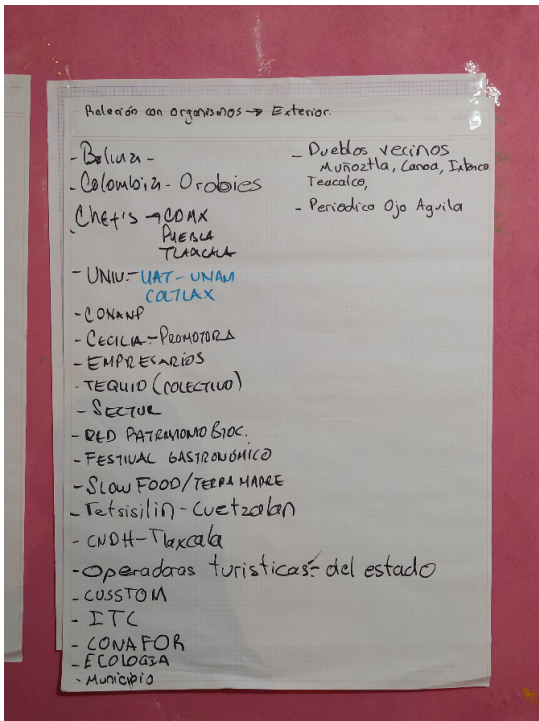 Relación con organismos → Exterior.
- Bolivia -
- Colombia - Orobies
Chef's → CDMX
PUEBLA
TLAXCALA
- UNIV.- UAT - UNAM
COLTLAX
- CONANP
- CECILIA - PROMOTORA
- EMPRESARIOS
- TEQUIO (COLECTIVO)
- SECTUR
- RED PATRIMONIO BIOC.
- FESTIVAL GASTRONÓMICO
- SLOW FOOD / TERRA MADRE
- Tetsisilin - Cuetzalan
- CNDH - Tlaxcala
- Operadoras turisticas - del estado
- CUSSTOM
- ITC
- CONAFOR
- ECOLOGIA
- Municipio
- Pueblos vecinos
Muñoztla, Canoa, Ixtenco
Teacalco,
- Periodico Ojo Aguila